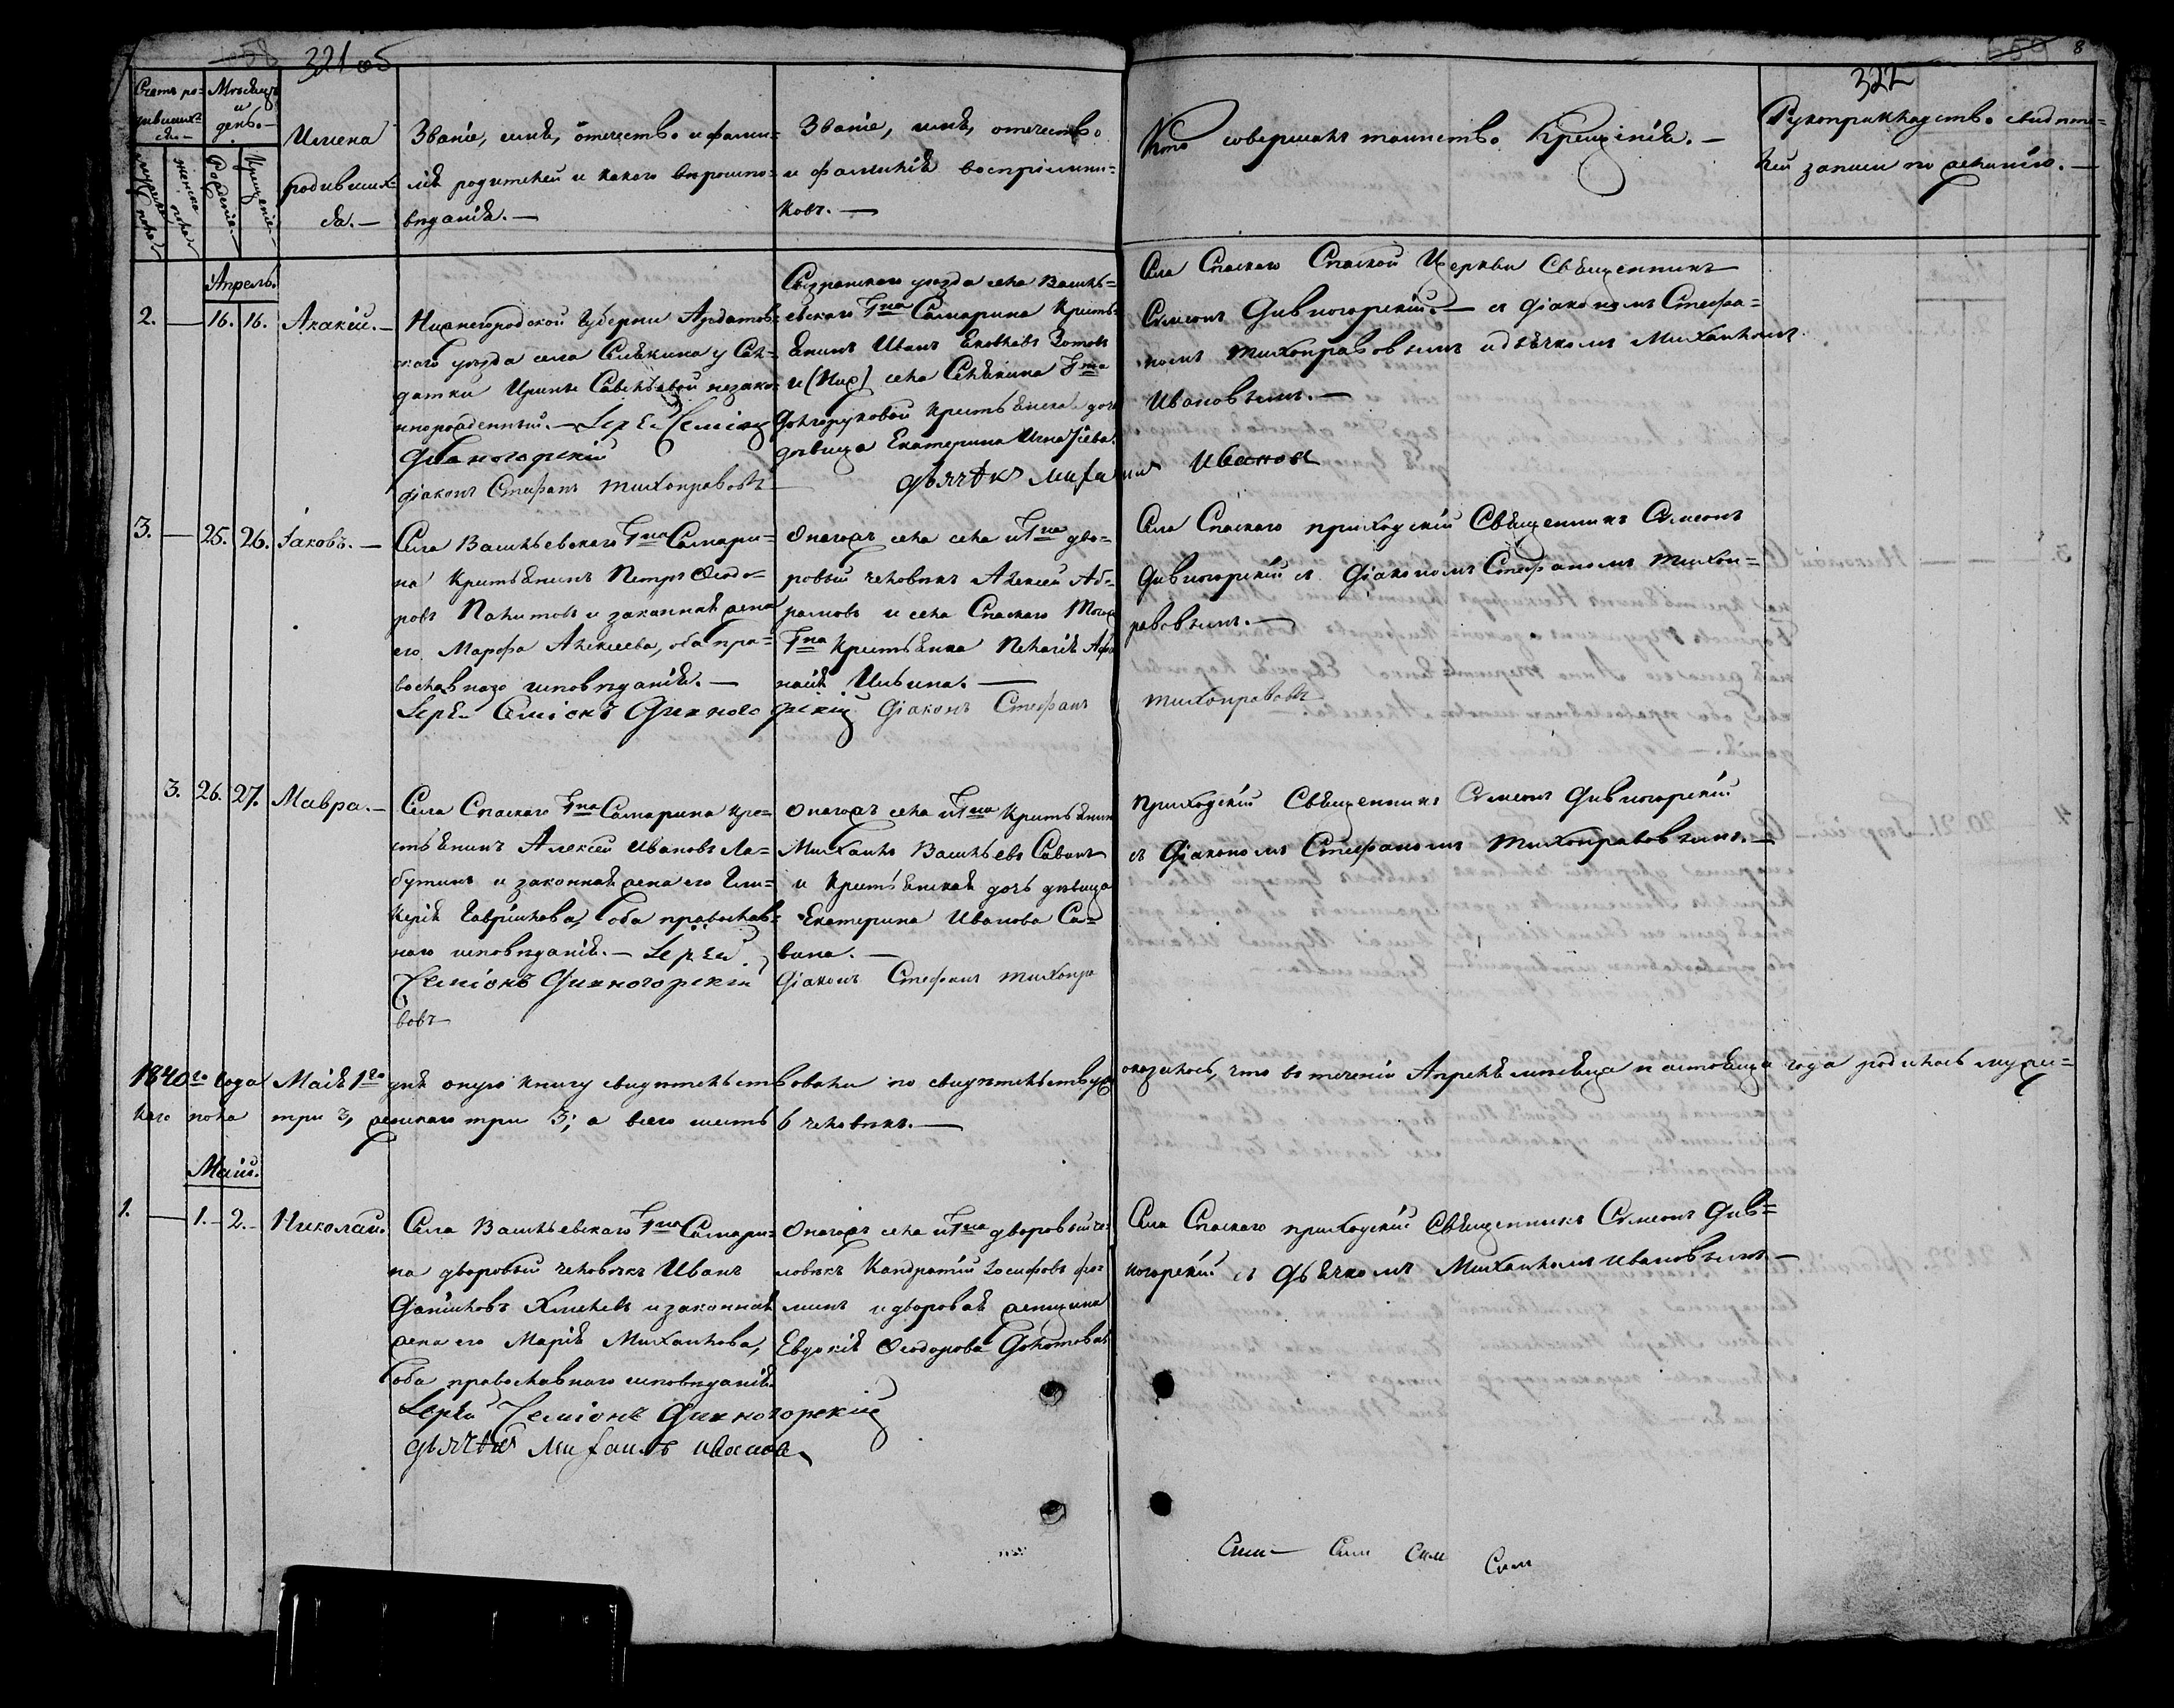 321 об
322
8
Счетъ ро-
дивших-
ся.—
Мѣсяцъ
и
день.—
мужеска пола
женска пола
Рожденіе.—
Крещеніе.—
Имена
родивших-
ся.—
Званіе, имя, отечество и фами-
лія родителей и какого вѣроиспо-
вѣданія.—
Званіе, имя, отечество
и фамилія воспріемни-
ковъ.—
Кто совершалъ таинство Крещенія.—
Рукоприкладство свидѣте-
лей записи по желанію.—
Апрель.
2. — 16. 16. Акакій.—
Нижегородской Губерніи Ардатов-
скаго уѣзда села Селякина у Сол-
датки Ирины Савельевой незако-
ннорожденный.— Іерей Семіонъ
Дивногорскій
діаконъ Стефанъ Тихонравовъ
Сызранскаго уѣзда села Василь-
евскаго Гна Самарина Кресть-
янинъ Иванъ Яковлевъ Зотовъ
и (Ниж) села Селякина Гна
Долгоруковой крестьянская дочь
дѣвица Екатерина Игнатіева.
дьячекъ Михаилъ Ивановъ
Села Спаскаго Спаской Церкви Священникъ
Симеонъ Дивногорскій.— съ діакономъ Стефа-
номъ Тихонравовымъ и дьячкомъ Михаиломъ
Ивановымъ.—
3. — 25. 26. Іаковъ.—
Села Васильевскаго Гна Самари-
на Крестьянинъ Петръ Ѳеодо-
ровъ Палитовъ и законная жена
его Марфа Алексеева, оба пра-
вославнаго исповѣданія.—
Іерей Семіонъ Дивногорскій Діаконъ Стефанъ Тихонравовъ
Онагожъ села и Гна дво-
ровый человѣкъ Алексей Аб-
рамовъ и села Спаскаго Тогожъ
Гна Крестьянка Пелагія Афо
насія Ильина.—
Села Спаскаго приходскій Священникъ Симеонъ
Дивногорскій съ Діакономъ Стефаномъ Тихон-
равовымъ.—
3. 26. 27. Мавра.—
Села Спаскаго Гна Самарина кре-
стьянинъ Алексей Ивановъ Ла-
бутинъ и законная жена его Гли-
керія Гаврилова, оба православ-
наго исповѣданія.— Іерей
Семіонъ Дивногорскій
Онагожъ села и Гна Крестьянинъ
Михаилъ Васильевъ Савинъ
и Крестьянская дочь дѣвица
Екатерина Иванова Са-
вина.—
Діаконъ Стефанъ Тихонра
вовъ
приходскій Священникъ Симеонъ Дивногорскій
съ Діакономъ Стефаномъ Тихонравовымъ.—
1840го года Маія 1го дня оную книгу свидѣтельствовали по свидѣтельству оказалось, что въ теченіи Апреля мѣсяца настоящаго года родилось муже-
скаго пола три 3, женскаго три 3; а всего шесть 6 человѣкъ.—
Маій.
1. — 1.— 2.— Николай.
Села Васильевскаго Гна Самари-
на дворовый человѣкъ Иванъ
Даниловъ Хмелевъ и законная
жена его Марія Михаилова,
оба православнаго исповѣданія.
Іерей Семіонъ Дивногорскій
дьячекъ Михаилъ Ивановъ
Онагожъ села и Гна дворовый че-
ловѣкъ Кандратій Іосифовъ Фо-
минъ и дворовая женщина
Евдокія Ѳеодорова Долотова
Села Спаскаго приходскій Священникъ Симеонъ Див-
ногорскій съ дьячкомъ Михаиломъ Ивановымъ.—
Сим Сим Сим Сим